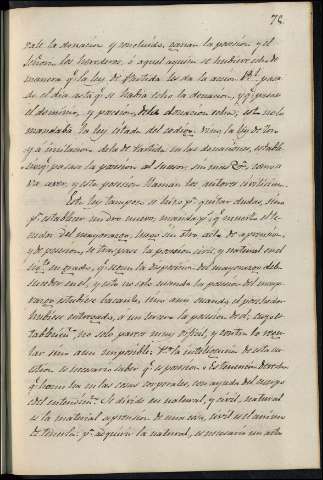 72
vale la donacion y concluido, ganan la posesion y el
Señorio los herederos, ó aquel aquien se hubiere echo de
manera qᵉ la ley de Partida les da la accion Rˡ pasa
do el dia esta qᵉ se había echo la donacion, y qᵉ gane
el dominio, y posesion, de la donacion echa, esto no lo
mandaba la ley citada del vino la ley de Toro
y a imitacion de la de Partida en las donaciones, estable
ció pasase la posesion al sucesor, sin mas, como
va a ver, y esta posesion llaman los autores civilisima.
Esta ley tampoco se hizo pᵃ quitar dudas, sino
pᵃ establecer un dro nuevo, mandando qᵉ muerto el te
nedor del mayorazgo, luego sin otro acto de aprension,
y de posesion, se traspase la posesion civil, y natural en el
sigᵗᵉ en grado, qᵉ segun la disposicion del mayorazgo deba
suceder en el, y esto no solo cuando la posesion del mayo
razgo estubiese bacante, sino aun cuando el poseedor
hubiese entregado, a un tercero la posesion de el, cuyo es
tablecimᵗᵒ no solo parece muy dificil, y contra lo
sino aun imposible. Pᵃ la inteligencia de esta cu
estion es necesario saber qᵉ es posesion. Es tenencia derecha
qᵉ home ha en las cosas corporales, con ayuda del cuerpo
é del entendimᵗᵒ. Se divide en natural, y civil, natural
es la material aprension de una cosa, civil es el animo
de tenerla: pᵃ adquirir la natural, es necesario un acto